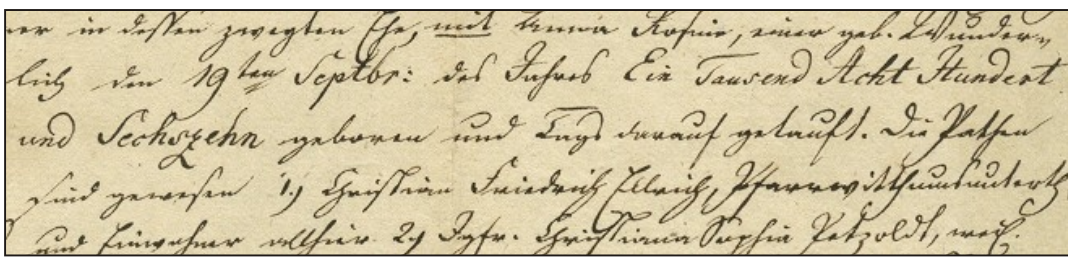 ner in dessen zweyten Ehe, mit Anna Rosine, einer geb. Wunder-
lich den 19ten Septbr: des Jahres Ein Tausend Acht Hundert
und Sechszehn geboren und Tags darauf getauft. Die Pathen
sind gewesen 1.) Christian Friedrich Ellrich, Pfarrwitthumsunterth
und Einwohner allhier 2.) Jgfr. Christiana Sophia Petzoldt, weil.